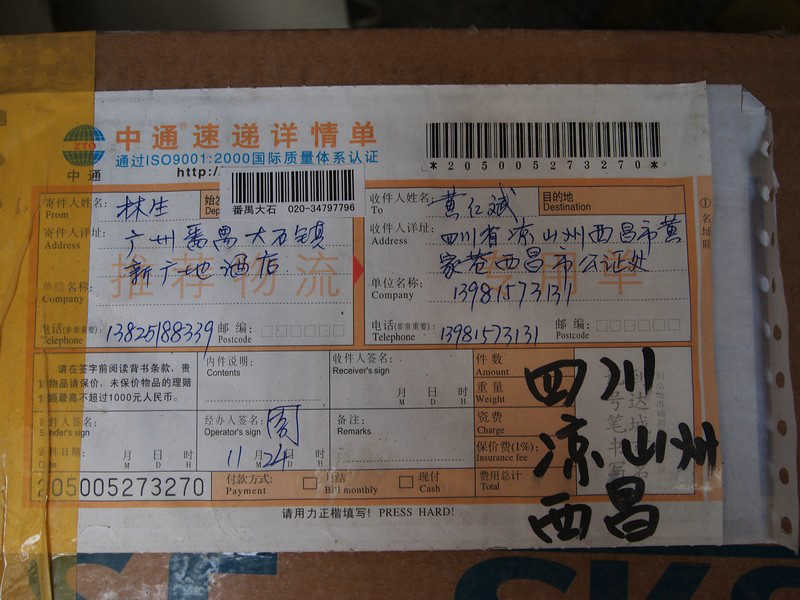 中通速递详情单
通过ISO9001:2000国际质量体系认证
http:/
ZTO
中通
*205005273270*
番禺大石 020-34797796
寄件人姓名:
From
林生
收件人姓名:
To
黄仁斌
目的地
Destination
寄件人详址:
Address
广州番禺大石镇
新广地酒店
收件人详址:
Address
四川省凉山州西昌市黄
家巷西昌市公证处
推荐物流
专用单
单位名称:
Company
单位名称:
Company
13981573131
电话(非常重要):
Telephone
13825188339
邮编:
Postcode
电话(非常重要):
Telephone
13981573131
邮编:
Postcode
①名址联
请在签字前阅读背书条款,贵
物品请保价,未保价物品的理赔
额最高不超过1000元人民币。
内件说明:
Contents
收件人签名:
Receiver's sign
月 日 时
M D H
件数
Amount
重量
Weight
资费
Charge
保价费(1%):
Insurance fee
费用总计
Total
经办人签名:
Operator's sign
周
11月24日 时
M D H
备注:
Remarks
205005273270
付款方式:
Payment
月结
Bill monthly
现付
Cash
请用力正楷填写! PRESS HARD!
四川
凉山州
西昌